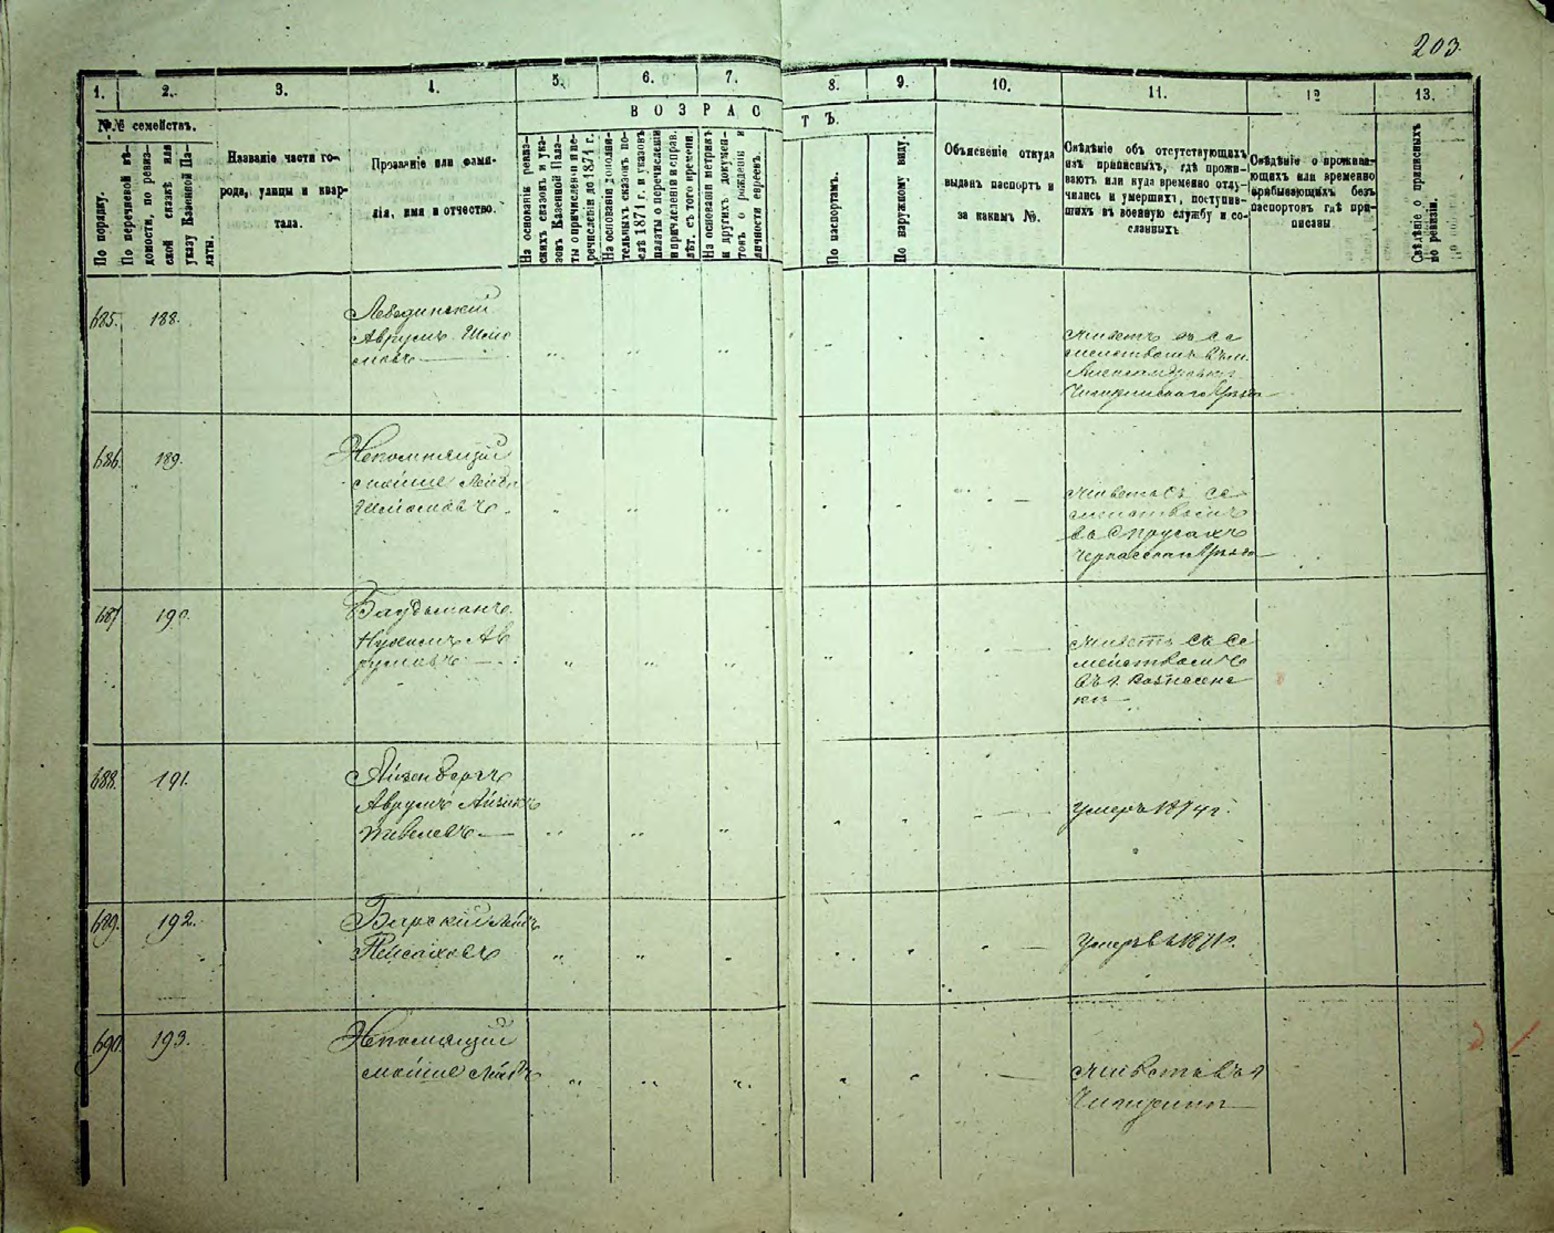 203
1. 2. 3. 4. 5. 6. 7. 8. 9. 10. 11. 12 13.
В О З Р А С Т Ъ.
№№ семействъ.
По порядку.
По перечневой вѣ-
домости, по ревиз-
ской сказкѣ или
указу Казенной Па-
латы.
Названіе части го-
рода, улицы и квар-
тала.
Прозваніе или фами-
лія, имя и отчество.
На основаніи ревиз-
скихъ сказокъ и ука-
зовъ Казенной Пала-
ты о причисленіи и пе-
речисленіи до 1874 г.
На основаніи дополни-
тельныхъ сказокъ по-
слѣ 1874 г. и указовъ
палаты о перечисленіи
и причисленіи и справ.
лѣт. съ того времени.
На основаніи метрикъ
и другихъ докумен-
товъ о рожденіи и
личности евреевъ.
По паспортамъ.
По наружному виду.
Объясненіе откуда
выданъ паспортъ и
за какимъ №.
Свѣдѣніе объ отсутствующихъ
изъ приписныхъ, гдѣ прожи-
ваютъ или куда временно отлу-
чились и умершихъ, поступив-
шихъ въ военную службу и со-
сланныхъ
Свѣдѣніе о прожива-
ющихъ или временно
прибывающихъ безъ
паспортовъ гдѣ при-
писаны
Свѣдѣніе о приписныхъ
по ревизіи.
685. 188.
Лебединскій
Аврумъ Шмо
мовъ
Живетъ съ се
мействомъ въ м.
Александровкѣ
Чигиринскаго Уѣзда
686. 189.
Непомнящій
Мойше Лейбъ
Шліомовъ
Живетъ съ се
мействомъ
въ
Черкасскаго Уѣзда
687 190.
Баудъманъ
Нухимъ Ав
румовъ
Живетъ съ се
мействомъ
въ г. Вознесенс
кѣ
688. 191.
Айзенбергъ
Аврумъ Айзикъ
Умеръ 1874 г.
689. 192.
Барскій
Пейсаховъ
Умеръ въ 1871 г.
690. 193.
Непомнящій
Мойше Лейбъ
Живетъ въ г
Чигиринѣ